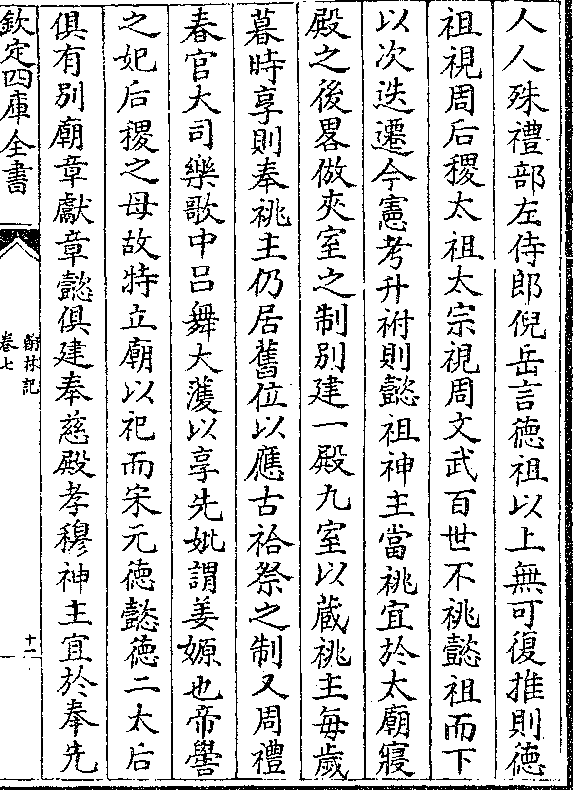 人人殊禮部左侍郎倪岳言德祖以上無可復推則德
祖視周后稷太祖太宗視周文武百世不祧懿祖而下
以次迭遷今憲考升祔則懿祖神主當祧宜於太廟寢
殿之後畧倣夾室之制别建一殿九室以蔵祧主每歲
暮時享則奉祧主仍居舊位以應古祫祭之制又周禮
春官大司樂歌中吕舞大濩以享先妣謂姜嫄也帝嚳
之妃后稷之母故特立廟以祀而宋元德懿德二太后
俱有别廟章獻章懿俱建奉慈殿孝穆神主宜於奉先
欽定四庫全書
卷七
十一